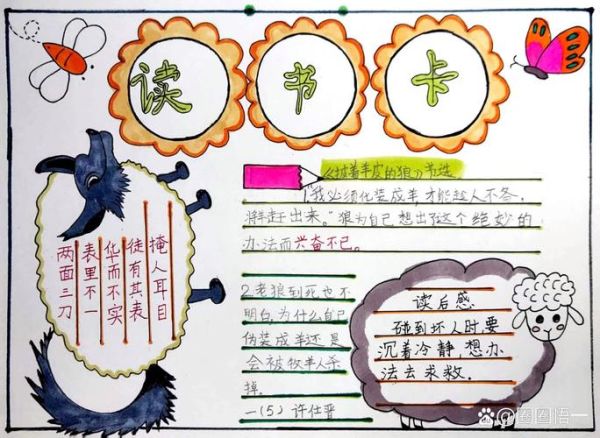 读书卡
《披着羊皮的狼》节选
1."我必须化装成羊才能趁人不备,
赶出来。"狼为自己想出了这个绝妙的
办法而兴奋不已。
掩人耳目
徒有其表
华而不实
表里不一
两面三刀
2.老狼到死也不
明白,为什么自己
伪装成羊还是
会被牧羊人杀
掉。
一(5) 许仕晋
读后感
碰到坏人时,要
沉着冷静,想办
法去求救。
@圈圈悟一